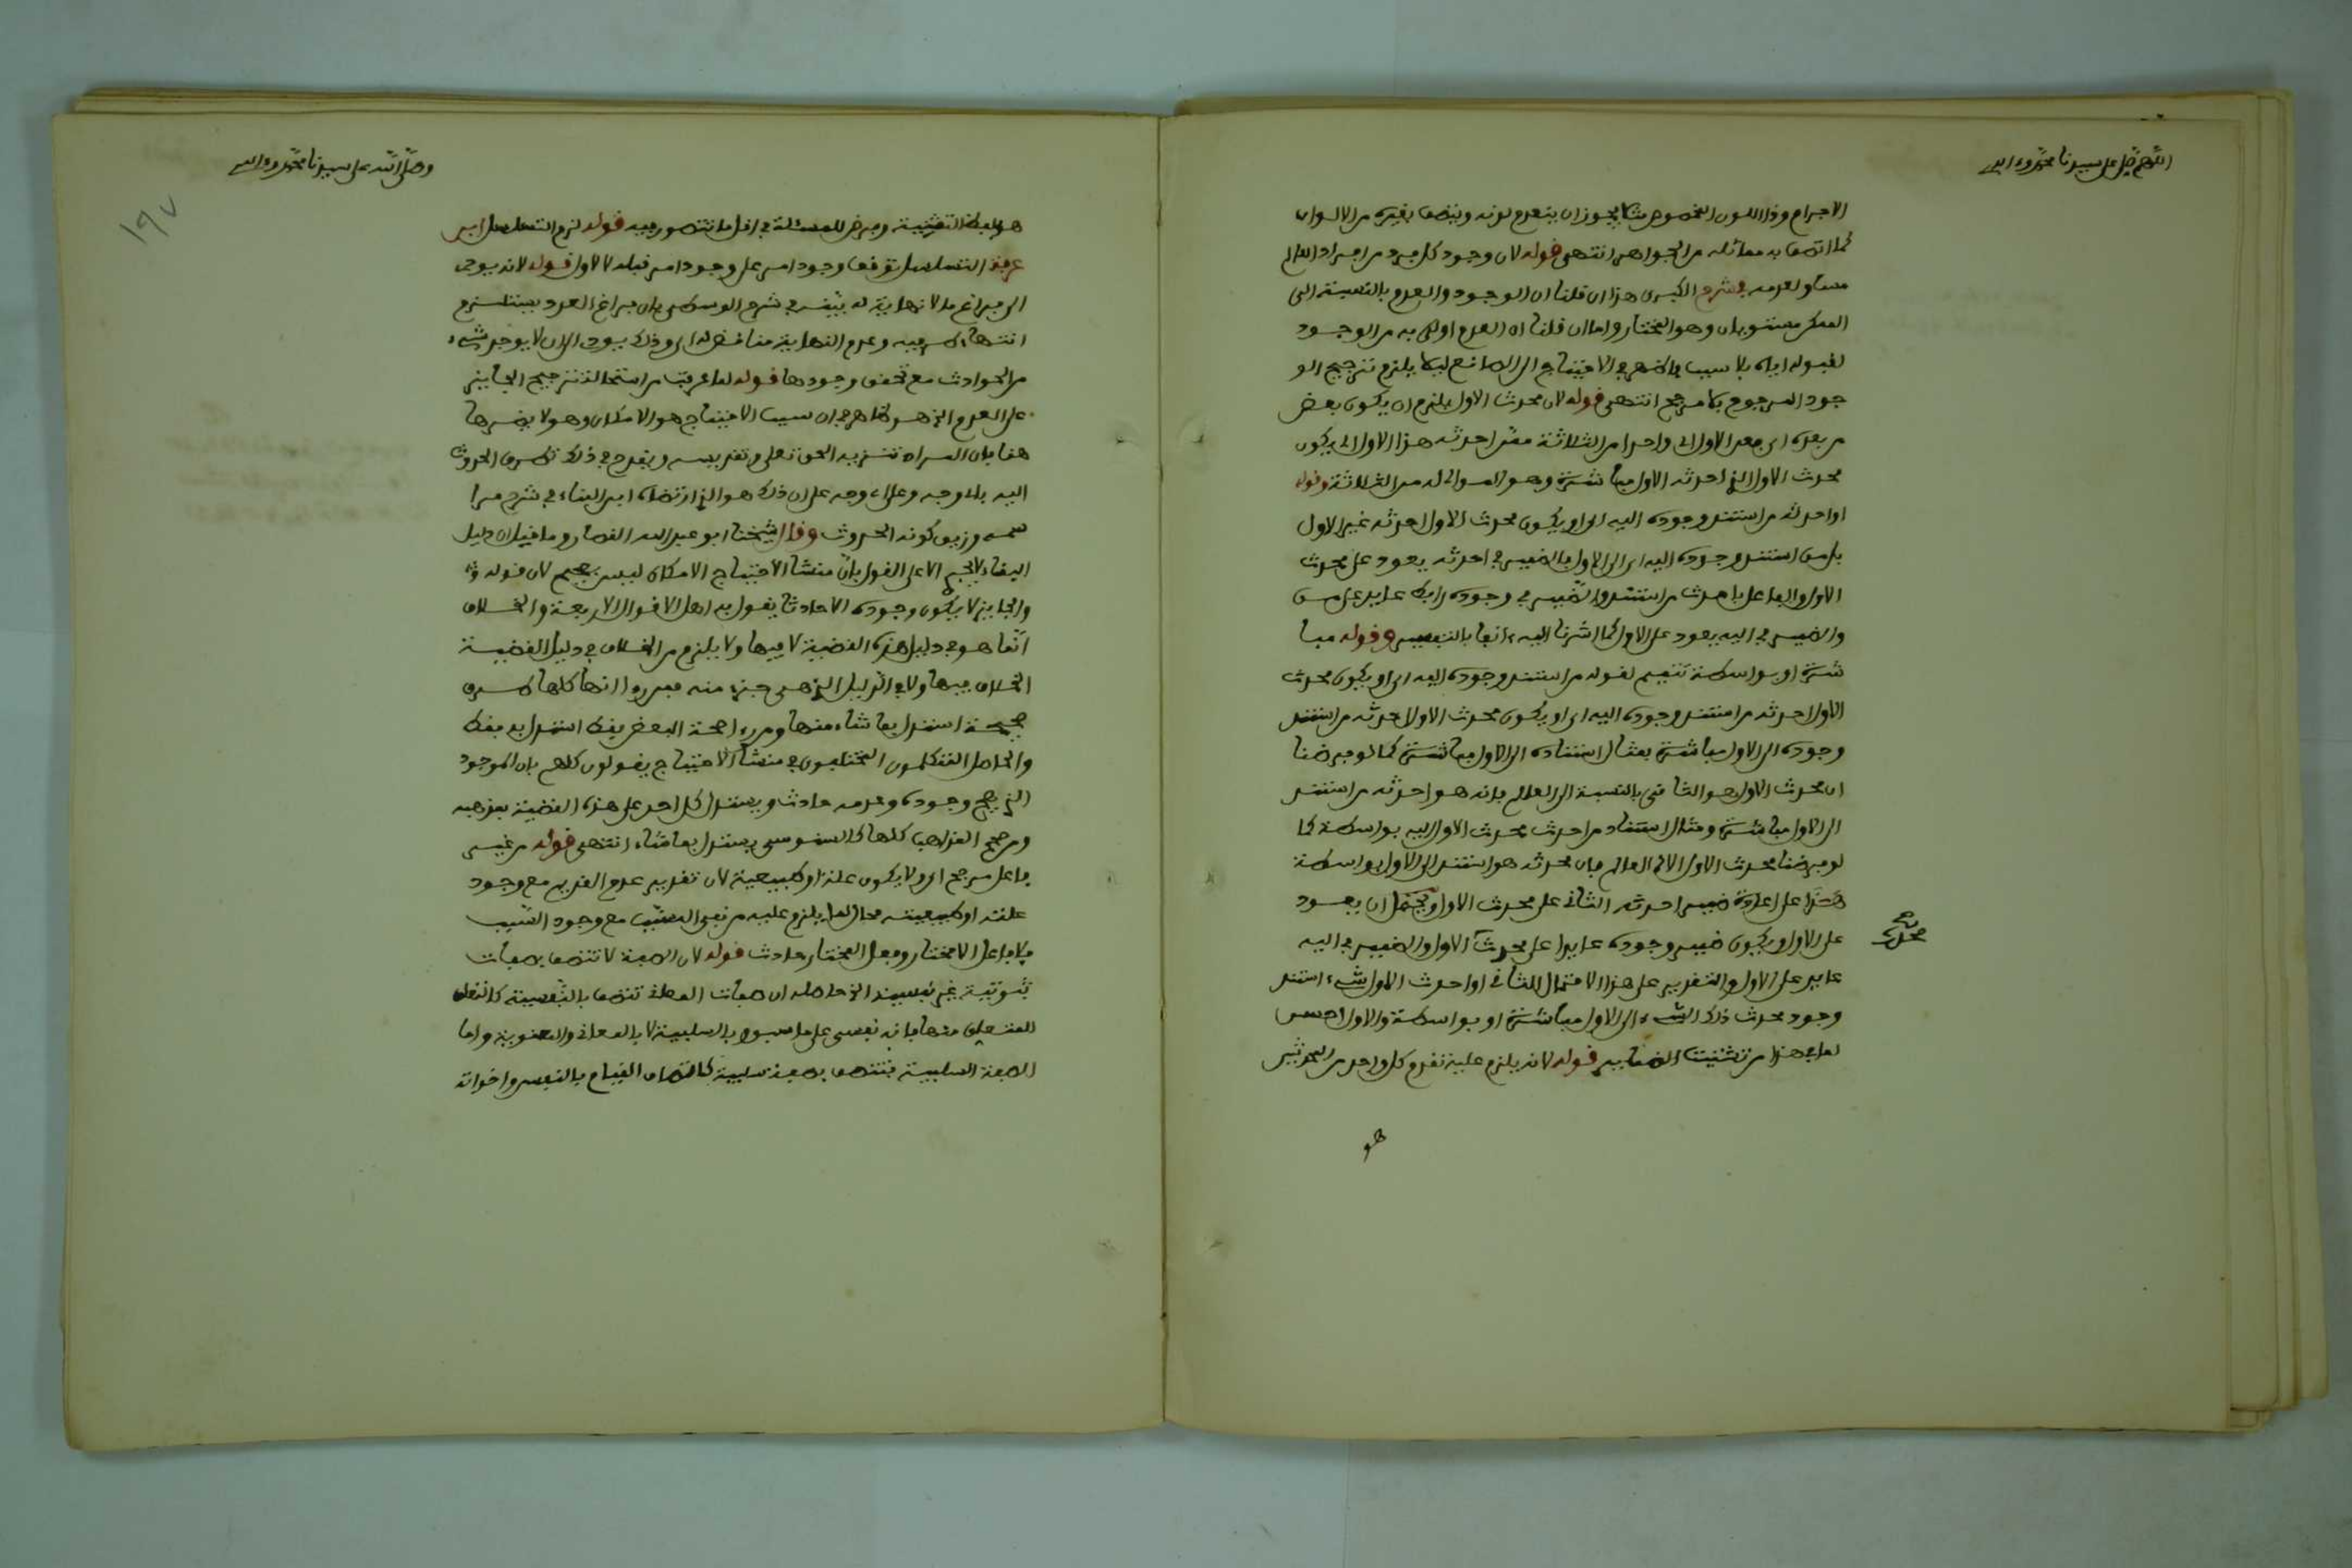 اللهم صل على سيدنا محمد وءاله
الاجرام وذا اللون المخصوص مثلا يجوز ان ينعدم لونه ويتصف بغيره من الالوان
كما اتصف به مماثله من الجواهر انتهى قوله لان وجود كل فرد من افراد العالم
مساو لعدمه في شرح الكبرى هذا ان قلنا ان الوجود والعدم بالنسبة الى
الممكن مستويان وهو المختار واما ان قلنا ان العدم اولى به من الوجود
لقبوله اياه بلا سبب فاظهر في الاحتياج الى الصانع ليلا يلزم ترجيح الو
جود المرجوح بلا مرجح انتهى قوله لان محدث الاول يلزم ان يكون بعض
من بعده اي بعد الاول اي واحدا من الثلاثة ممن احدثه هذا الاول اي يكون
محدث الاول الذي احدثه الاول مباشرة وهو الموالي له من الثلاثة وقوله
او احدثه من استند وجوده اليه اي او يكون محدث الاول احدثه غير الاول
بل من استند وجوده اليه اي الى الاول فالضمير في احدثه يعود على محدث
الاول والفاعل باحدث من استند والضمير في وجوده رابط عايد على من
والضمير في اليه يعود على الاول كما اشرنا اليه ءانفا بالتفسير وقوله مبا
شرة او بواسطة تتميم لقوله من استند وجوده اليه اي او يكون محدث
الاول احدثه من استند وجوده اليه اي او يكون محدث الاول احدثه من استند
وجوده الى الاول مباشرة بمثال استناده الى الاول مباشرة كما لو فرضنا
ان محدث الاول هو الثاني بالنسبة الى العالم فانه هو احدثه من استند
الى الاول مباشرة ومثال استناد من احدث محدث الاول اليه بواسطة كما
لو فرضنا محدث الاول الاله العالم فان محدثه هو استند الى الاول بواسطة
هذا على اعادة ضمير احدثه الثاني على محدث الاول ويحتمل ان يعود
محدث صح
على الاول ويكون ضمير وجوده عايدا على محدث الاول والضمير في اليه
عايد على الاول والتقدير على هذا الاحتمال الثاني او احدث الاول شيء استند
وجود محدث ذلك الشيء الى الاول مباشرة او بواسطة والاول احسن
لما في هذا من تشتيت الضماير قوله لانه يلزم عليه تقدم كل واحد من المحدثين
هو
وصلى الله على سيدنا محمد وءاله
١٩٧
هو لفظ التثنية وفرض للمسئلة في اقل ما تتصور فيه قوله لزم التسلسل ابن
عرفة التسلسل توقف وجود امر على وجود امر قبله لا لاول قوله لانه يودي
الى فراغ ما لا نهاية له بينه في شرح الوسطى بان فراغ العدد يستلزم
انتهاء طرفيه وعدم النهاية مناقض له اي وذلك يودي الى ان لا يوجد شيء
من الحوادث مع تحقق وجودها قوله لما عرفت من استحالة ترجيح الجايز
على العدم الخ هو ظاهر في ان سبب الاحتياج هو الامكان وهو لا يضر ها
هنا فان المراد تنزيه الحق تعلى وتقديسه ويقدح في ذلك تطرق الحدوث
اليه باي وجه وعلى اي وجه على ان ذلك هو الذي ارتضاه ابن البناء في شرح مرا
سمه وزيف كونه الحدوث وقال شيخنا ابو عبد الله القصار وما قيل ان دليل
البقاء لا يتم الا على القول بان منشأ الاحتياج الامكان ليس بصحيح لان قوله
والجايز لا يكون وجوده الا حادثا يقول به اهل الاقوال الاربعة والخلاف
انما هو في دليل هذه القضية لا فيها ولا يلزم من الخلاف في دليل القضية
الخلاف فيها ولا في الدليل الذي هي جزء منه فمن روا انها كلها طرق
صحيحة استدل بما شاء منها ومن رءا صحة البعض فقط استدل به فقط
والحاصل المتكلمون المختلفون في منشأ الاحتياج يقولون كلهم بان الموجود
الذي يصح وجوده وعدمه حادث ويستدل كل احد على هذه القضية بمذهبه
ومن صحح المذاهب كلها كالسنوسي يستدل بما شاء انتهى قوله من غير
فاعل مرجح اي ولا يكون علة او طبيعة لان تقدير عدم القديم مع وجود
علته او طبيعته محال لما يلزم عليه من نفي المسبب مع وجود السبب
فلا فاعل الا مختار وفعل المختار حادث قوله لان الصفة لا تتصف بصفات
ثبوتية غير نفسية الخ حاصله ان صفات المعاني تتصف بالنفسية كالتعلق
للمتعلق منها فانه نفسي على ما صوبوا بالسلبية لا بالمعاني والمعنوية واما
الصفة السلبية فتتصف بصفة سلبية كاتصاف القيام بالنفس واخواته